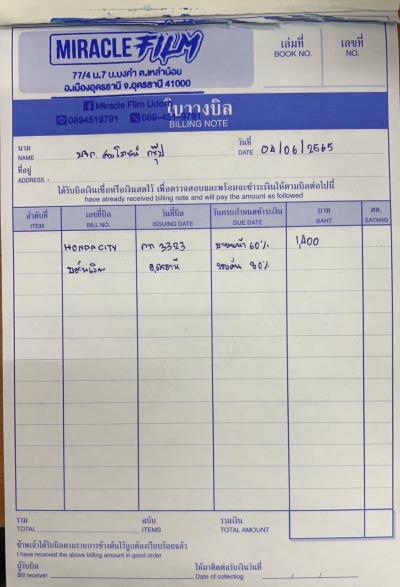 MIRACLE FILM
77/4 ม.7 บ.บงคำ ต.เหล่าน้อย
อ.เมืองอุดรธานี จ.อุดรธานี 41000
Miracle Flim Udon
0894519791
เล่มที่
BOOK NO.
เลขที่
NO.
ใบวางบิล
BILLING NOTE
นาม
NAME
วันที่
DATE 04/06/2565
ที่อยู่
ADDRESS
ได้รับบิลเงินเชื่อหรือเงินสดไว้ เพื่อตรวจสอบและพร้อมจะชำระเงินให้ตามบิลต่อไปนี้
have already received billing note and will pay the amount as followed
ลำดับที่ เลขที่บิล วันที่บิล วันครบกำหนดชำระเงิน บาท สต.
ITEM BILL NO. ISSUING DATE DUE DATE BAHT SATANG
HONDA CITY กก 3323 บานหน้า 60% 1,400
อุดรธานี รอบคัน 80%
รวม ฉบับ รวมเงิน
TOTAL ITEMS TOTAL AMOUNT
ข้าพเจ้าได้รับบิลตามรายการข้างต้นไว้ถูกต้องเรียบร้อยแล้ว
I have received the above billing amount in good order
ผู้รับบิล ให้มาติดต่อรับเงินวันที่
Bill receiver Date of collecting